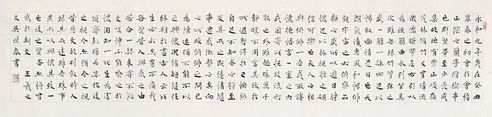 永和九年歲在癸丑
暮春之初會于會稽
山陰之蘭亭脩禊事
也群賢畢至少長咸
集此地有崇山峻領
茂林脩竹又有清流
激湍映帶左右引以
為流觴曲水列坐其
次雖無絲竹管弦之
盛一觴一詠亦足以
暢敘幽情是日也天
朗氣清惠風和暢仰
觀宇宙之大俯察品
類之盛所以遊目騁
懷足以極視聽之娛
信可樂也夫人之相
與俯仰一世或取諸
懷抱悟言一室之內
或因寄所託放浪形
骸之外雖趣舍萬殊
靜躁不同當其欣於
所遇暫得於己快然
自足不知老之將至
及其所之既惓情隨
事遷感慨係之矣向
之所欣俛仰之間以
為陳迹猶不能不以
之興懷況脩短隨化
終期於盡古人云死
生亦大矣豈不痛哉
每攬昔人興感之由
若合一契未嘗不臨
文嗟悼不能喻之於
懷固知一死生為虛
誕齊彭殤為妄作後
之視今亦由今之視
昔悲夫故列敘時人
錄其所述雖世殊事
異所以興懷其致一
也後之攬者亦將有
感於斯文